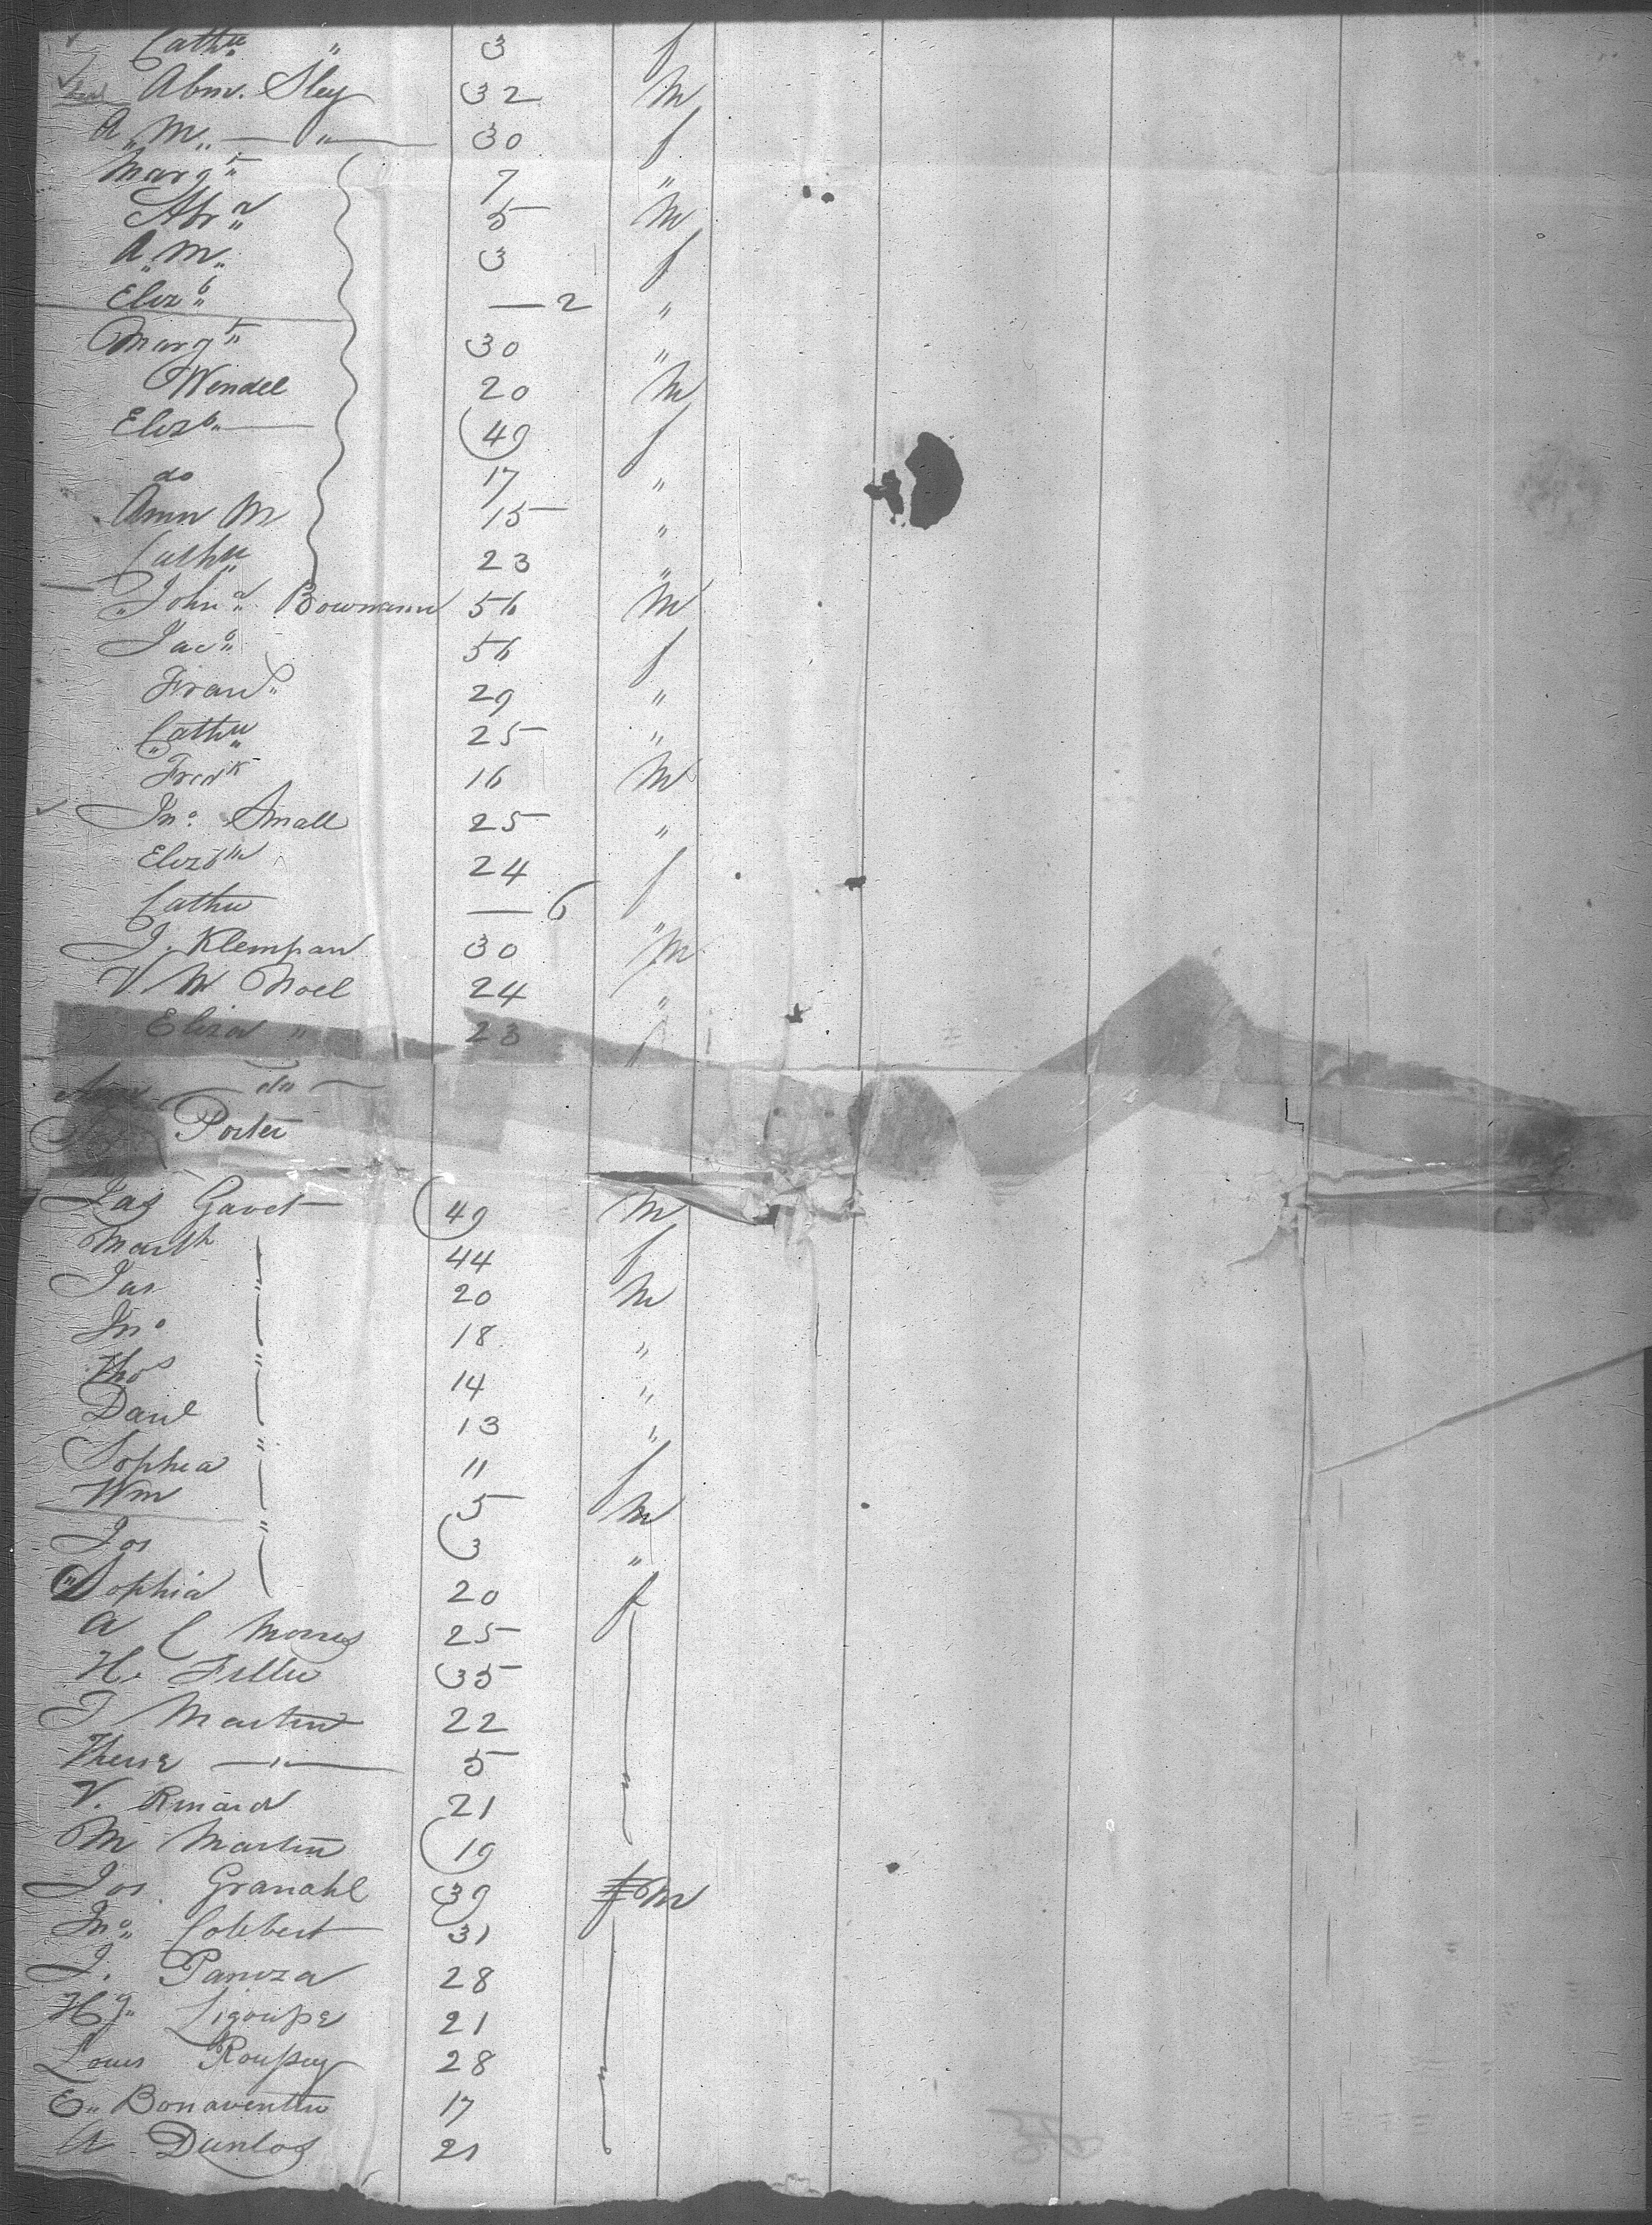 Cathe " 3 f
Abm. Sley 32 M
A. M. — " — 30 f
Margt 7 "
Abrm 5 M
A. M. 3 f
Elizb — 2 "
Margt 30 "
Wendel 20 M
Elizb — 49 f
do 17 "
Ann M 15 "
Cathe 23 "
John Bowmann 56 M
Jacb 56 f
Fran 29 "
Cathe 25 "
Fredk 16 M
Jno. Small 25 "
Elizbth 24 f
Cathe — 6 "
J. Klempau 30 M
V. M Noel 24 "
Eliza " 23 f
do —
Porter
Jas Gavet 49 M
Marth " 44 f
Jas 20 M
Jno " 18 "
Thos 14 "
Danl 13 "
Sophia " 11 f
Wm 5 M
Jos " 3 "
Sophia 20 f
A C Morres 25
H. Feller 35
T Martin 22
— " — 5
V. Rinard 21 "
M Martin 19
Jos. Granahl 39 M
Jno. Cobbert 31
J. Panoza 28
Hy Ligoupe 21
Louis Roupey 28 "
E. Bonaventu 17
A Dunlos 21